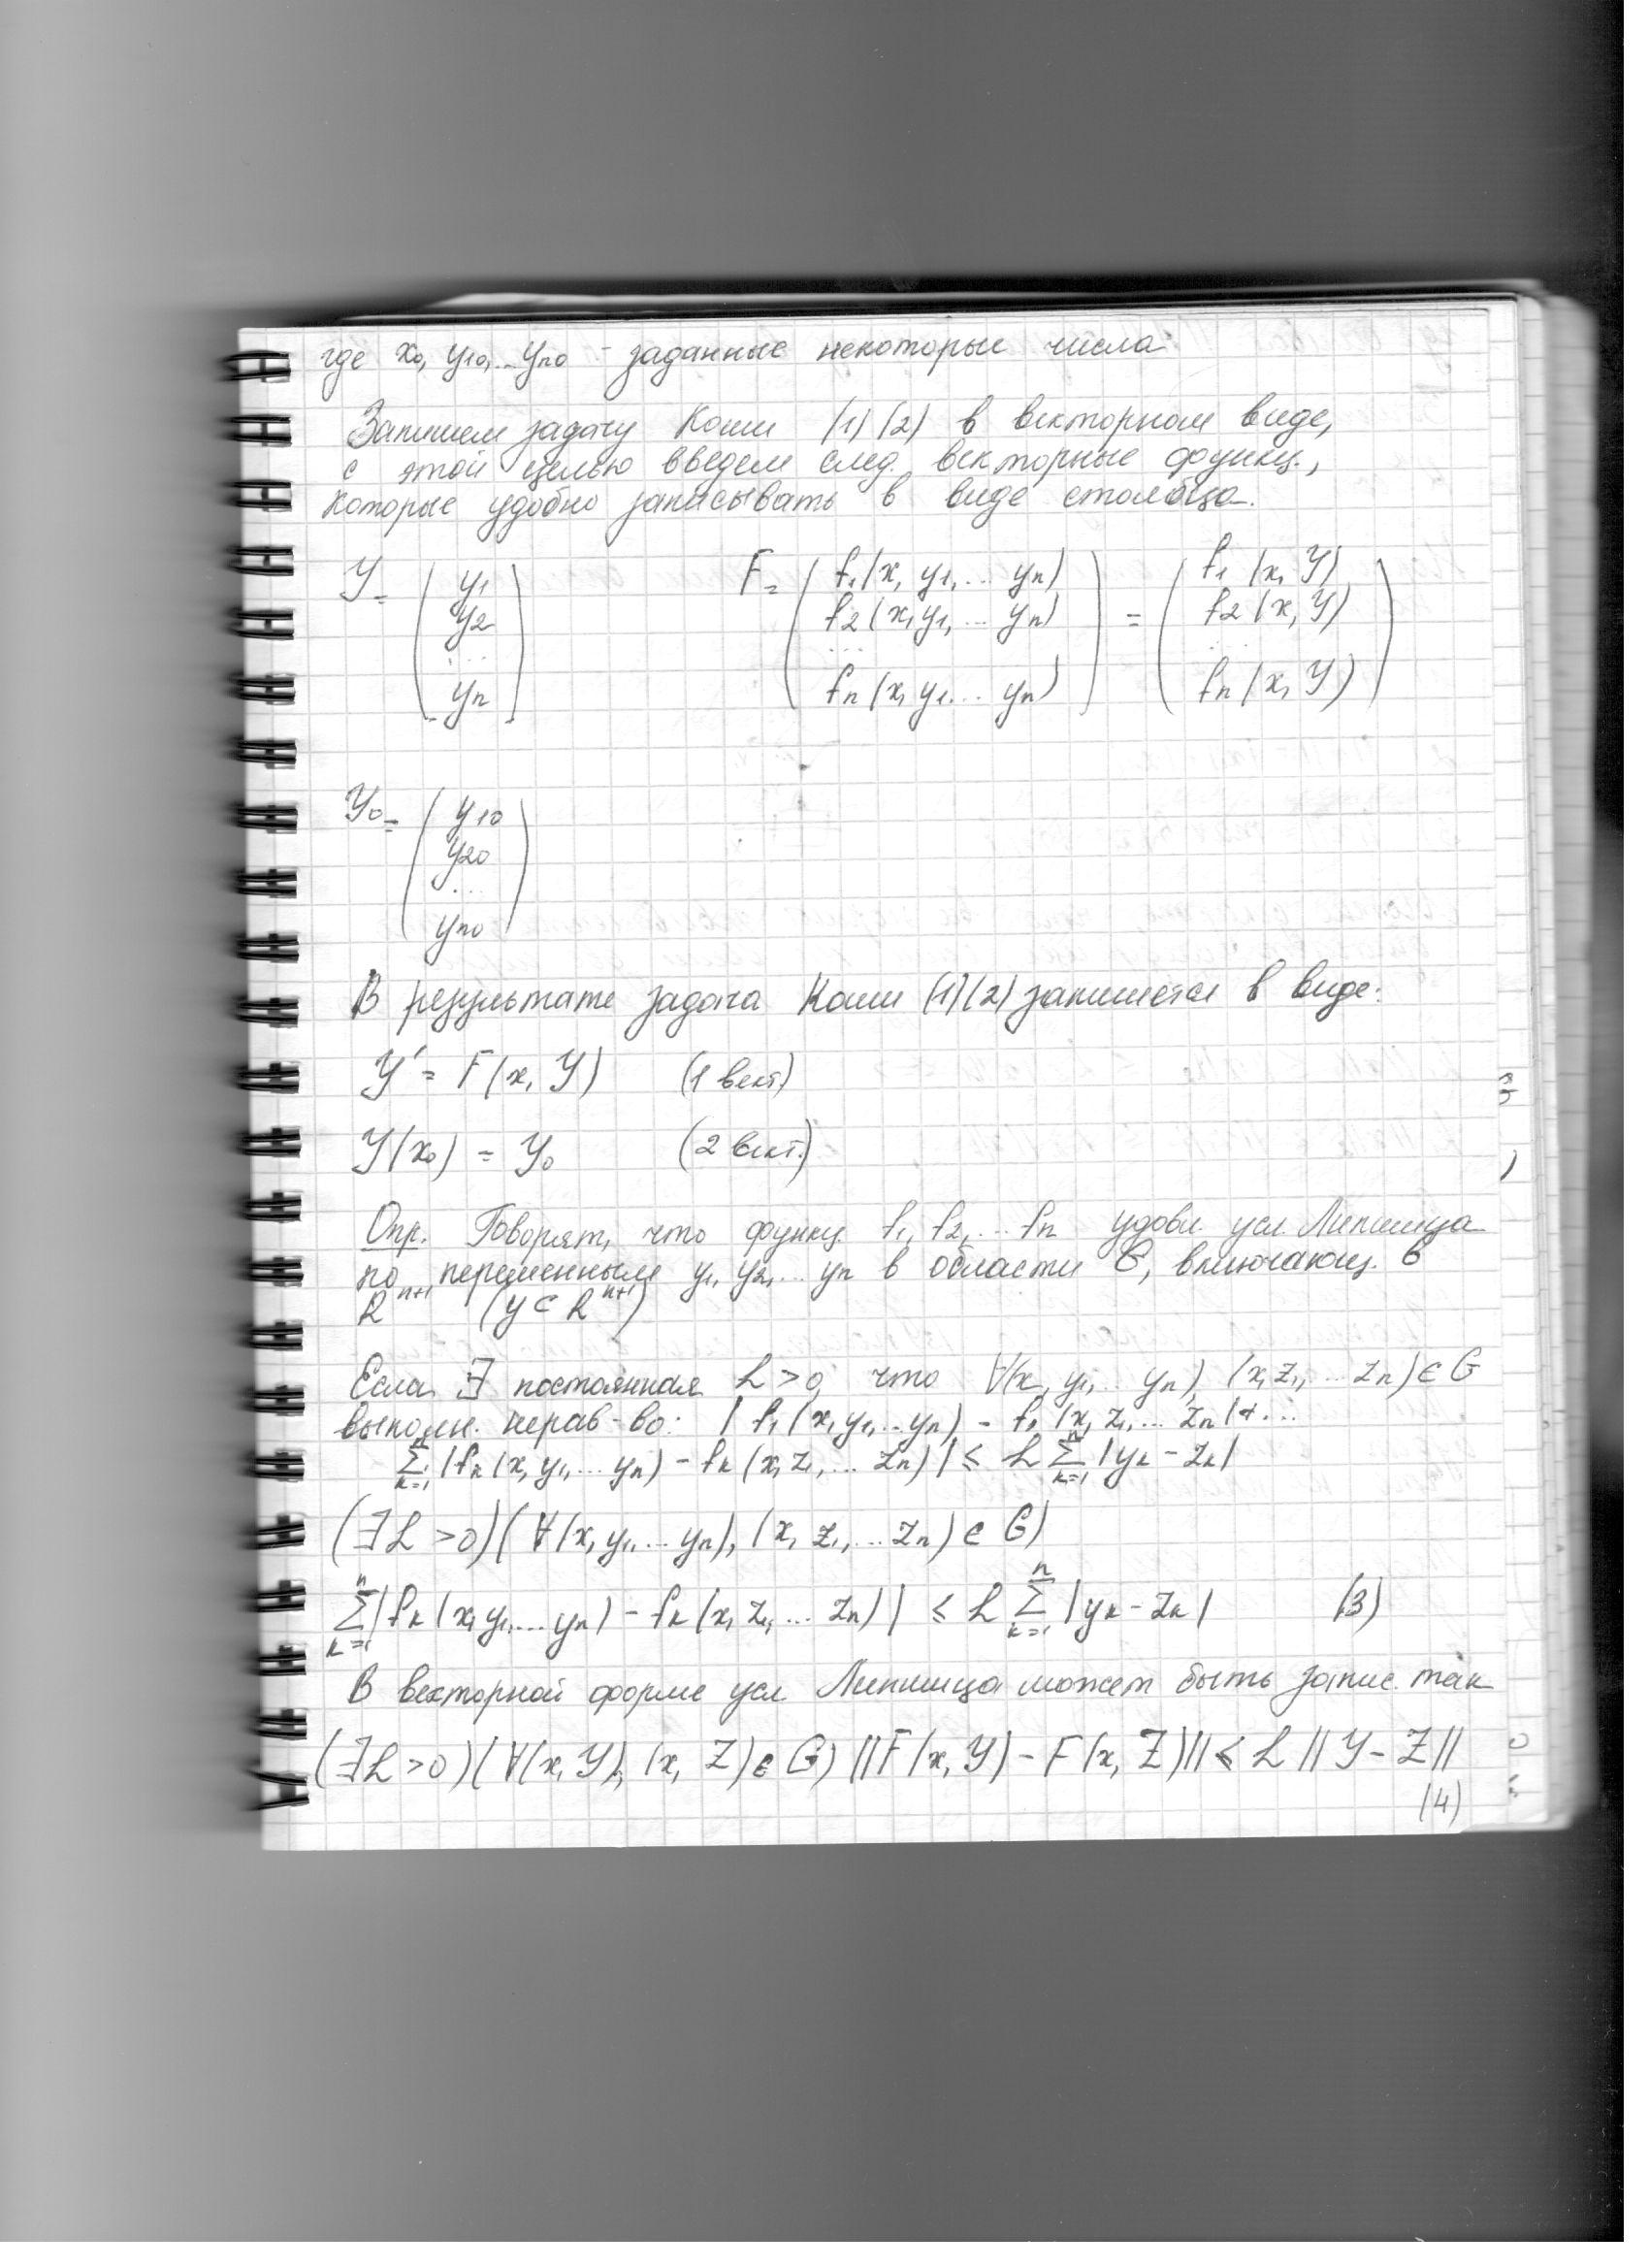 где x₀, y₁₀, ... yₙ₀ - заданные некоторые числа
Запишем задачу Коши (1) (2) в векторном виде,
с этой целью введем след. векторные функц.,
которые удобно записывать в виде столбца.
Y = ( y₁ y₂ ... yₙ ) F = ( f₁(x, y₁, ... yₙ) f₂(x, y₁, ... yₙ) ... fₙ(x, y₁... yₙ) ) = ( f₁(x, Y) f₂(x, Y) ... fₙ(x, Y) )
Y₀ = ( y₁₀ y₂₀ ... yₙ₀ )
В результате задача Коши (1)(2) запишется в виде:
Y' = F(x, Y) (1 вект)
Y(x₀) = Y₀ (2 вект.)
Опр. Говорят, что функц. f₁, f₂, ... fₙ удовл. усл. Липшица
по переменным y₁, y₂, ... yₙ в области G, включающ. в
Rⁿ⁺¹ (y ⊂ Rⁿ⁺¹)
Если ∃ постоянная L > 0, что ∀(x, y₁, ... yₙ), (x, z₁, ... zₙ) ∈ G
выполн. нерав-во: |f₁(x, y₁, ... yₙ) - f₁(x, z₁, ... zₙ| + ...
∑ₖ₌₁ⁿ |fₖ(x, y₁, ... yₙ) - fₖ(x, z₁, ... zₙ)| ≤ L ∑ₖ₌₁ⁿ |yₖ - zₖ|
(∃L > 0)(∀(x, y₁, ... yₙ), (x, z₁, ... zₙ) ∈ G)
∑ₖ₌₁ⁿ |fₖ(x, y₁, ... yₙ) - fₖ(x, z₁, ... zₙ)| ≤ L ∑ₖ₌₁ⁿ |yₖ - zₖ| (3)
В векторной форме усл. Липшица может быть запис. так
(∃L > 0)(∀(x, Y), (x, Z) ∈ G) ||F(x, Y) - F(x, Z)|| ≤ L ||Y - Z||
(4)